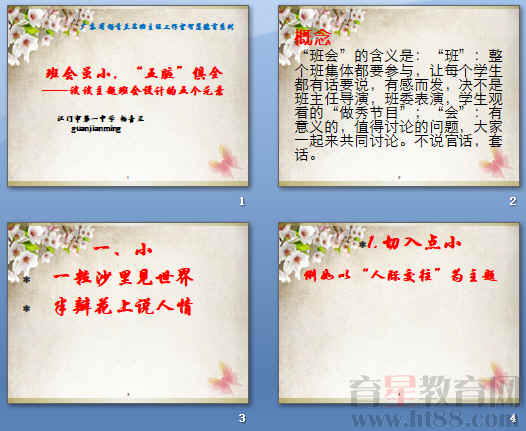 班会虽小,“五脏”俱全
——谈谈主题班会设计的五个元素
江门市第一中学 杨喜正
guanjianming
1
概念
“班会”的含义是:“班”:整
个班集体都要参与,让每个学生
都有话要说,有感而发,决不是
班主任导演,班委表演,学生观
看的“做秀节目”;“会”:有
意义的,值得讨论的问题,大家
一起来共同讨论。不说官话,套
话。
2
一、小
* 一粒沙里见世界
* 半瓣花上说人情
3
*1.切入点小
例如以“人际交往”为主题
育星教育网
www.ht88.com
4